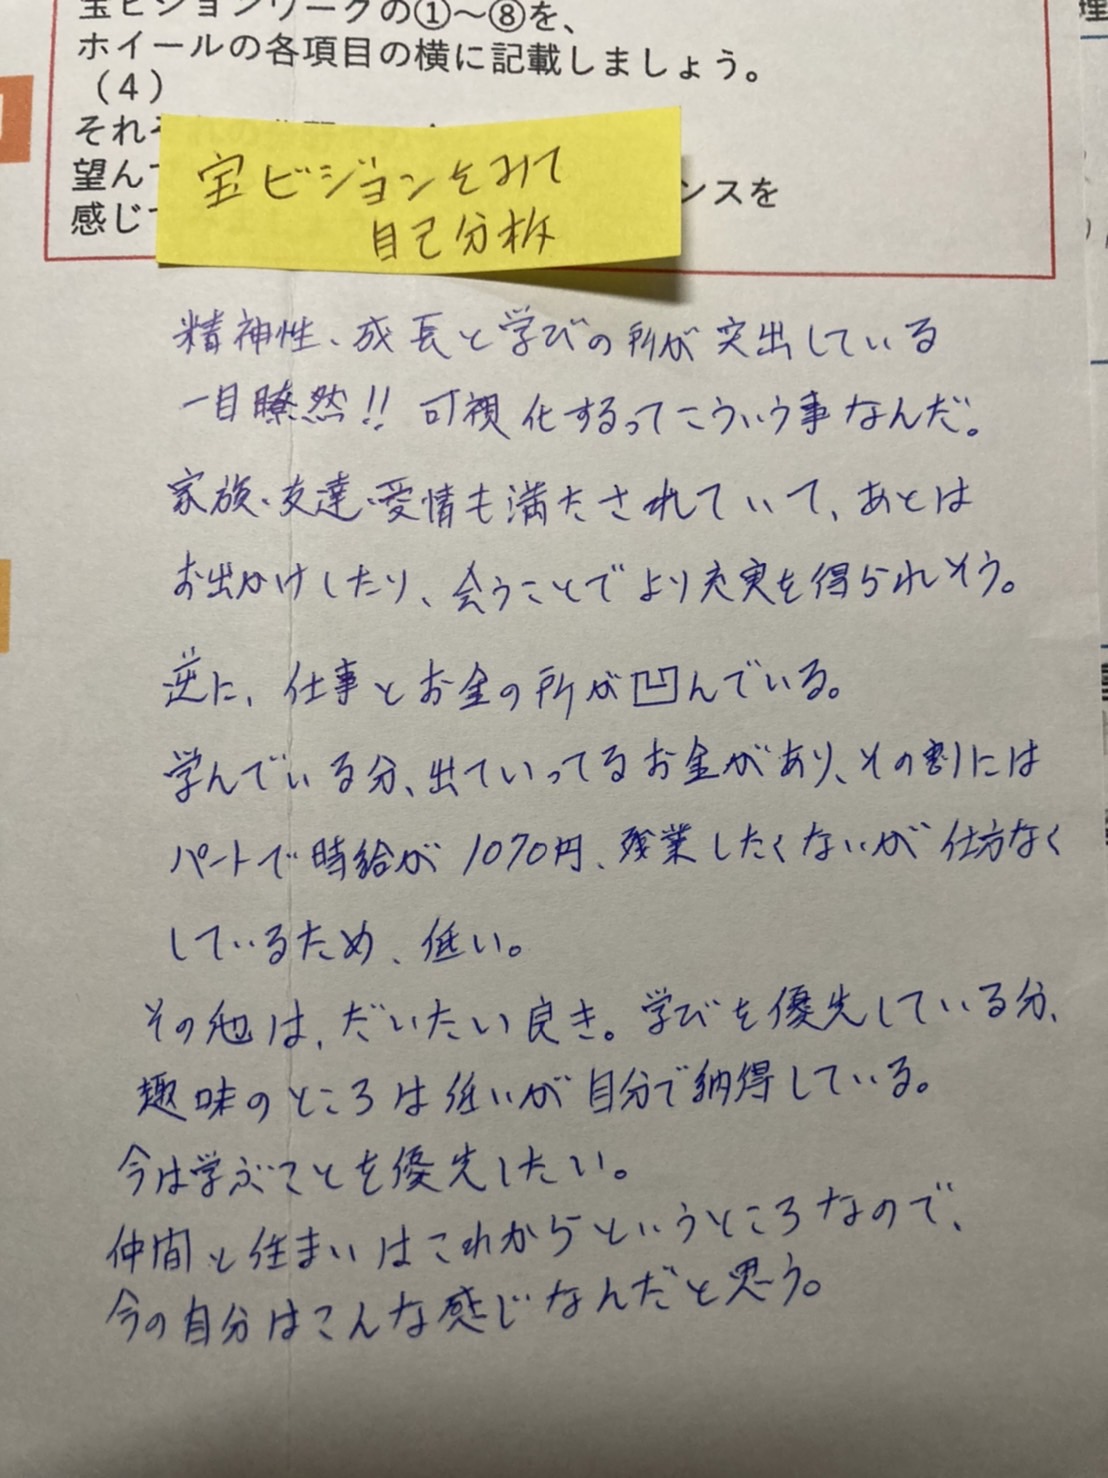 宝ビジョンワークの①～⑧を、
ホイールの各項目の横に記載しましょう。
（４）
それぞれの
望んで
ンスを
感じて
宝ビジョンをみて
自己分析
精神性、成長と学びの所が突出している
一目瞭然!! 可視化するってこういう事なんだ。
家族・友達・愛情も満たされていて、あとは
お出かけしたり、会うことでより充実を得られそう。
逆に、仕事とお金の所が凹んでいる。
学んでいる分、出ていってるお金があり、その割には
パートで時給が1070円、残業したくないが仕方なく
しているため、低い。
その他は、だいたい良き。学びを優先している分、
趣味のところは低いが自分で納得している。
今は学ぶことを優先したい。
仲間と住まいはこれからというところなので、
今の自分はこんな感じなんだと思う。
理